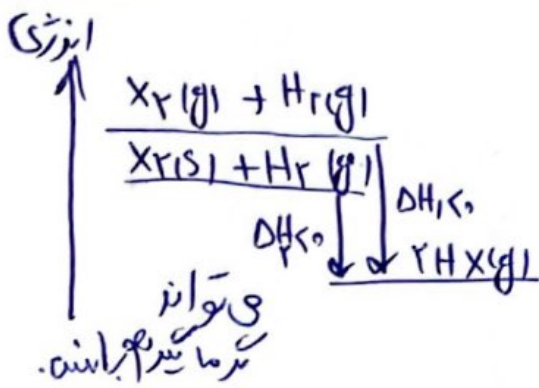 انرژی
X۲(g) + H۲(g)
X۲(s) + H۲(g)
ΔH۱<۰
ΔH۲<۰
۲HX(g)
می تواند
گرماگیر هم باشد.